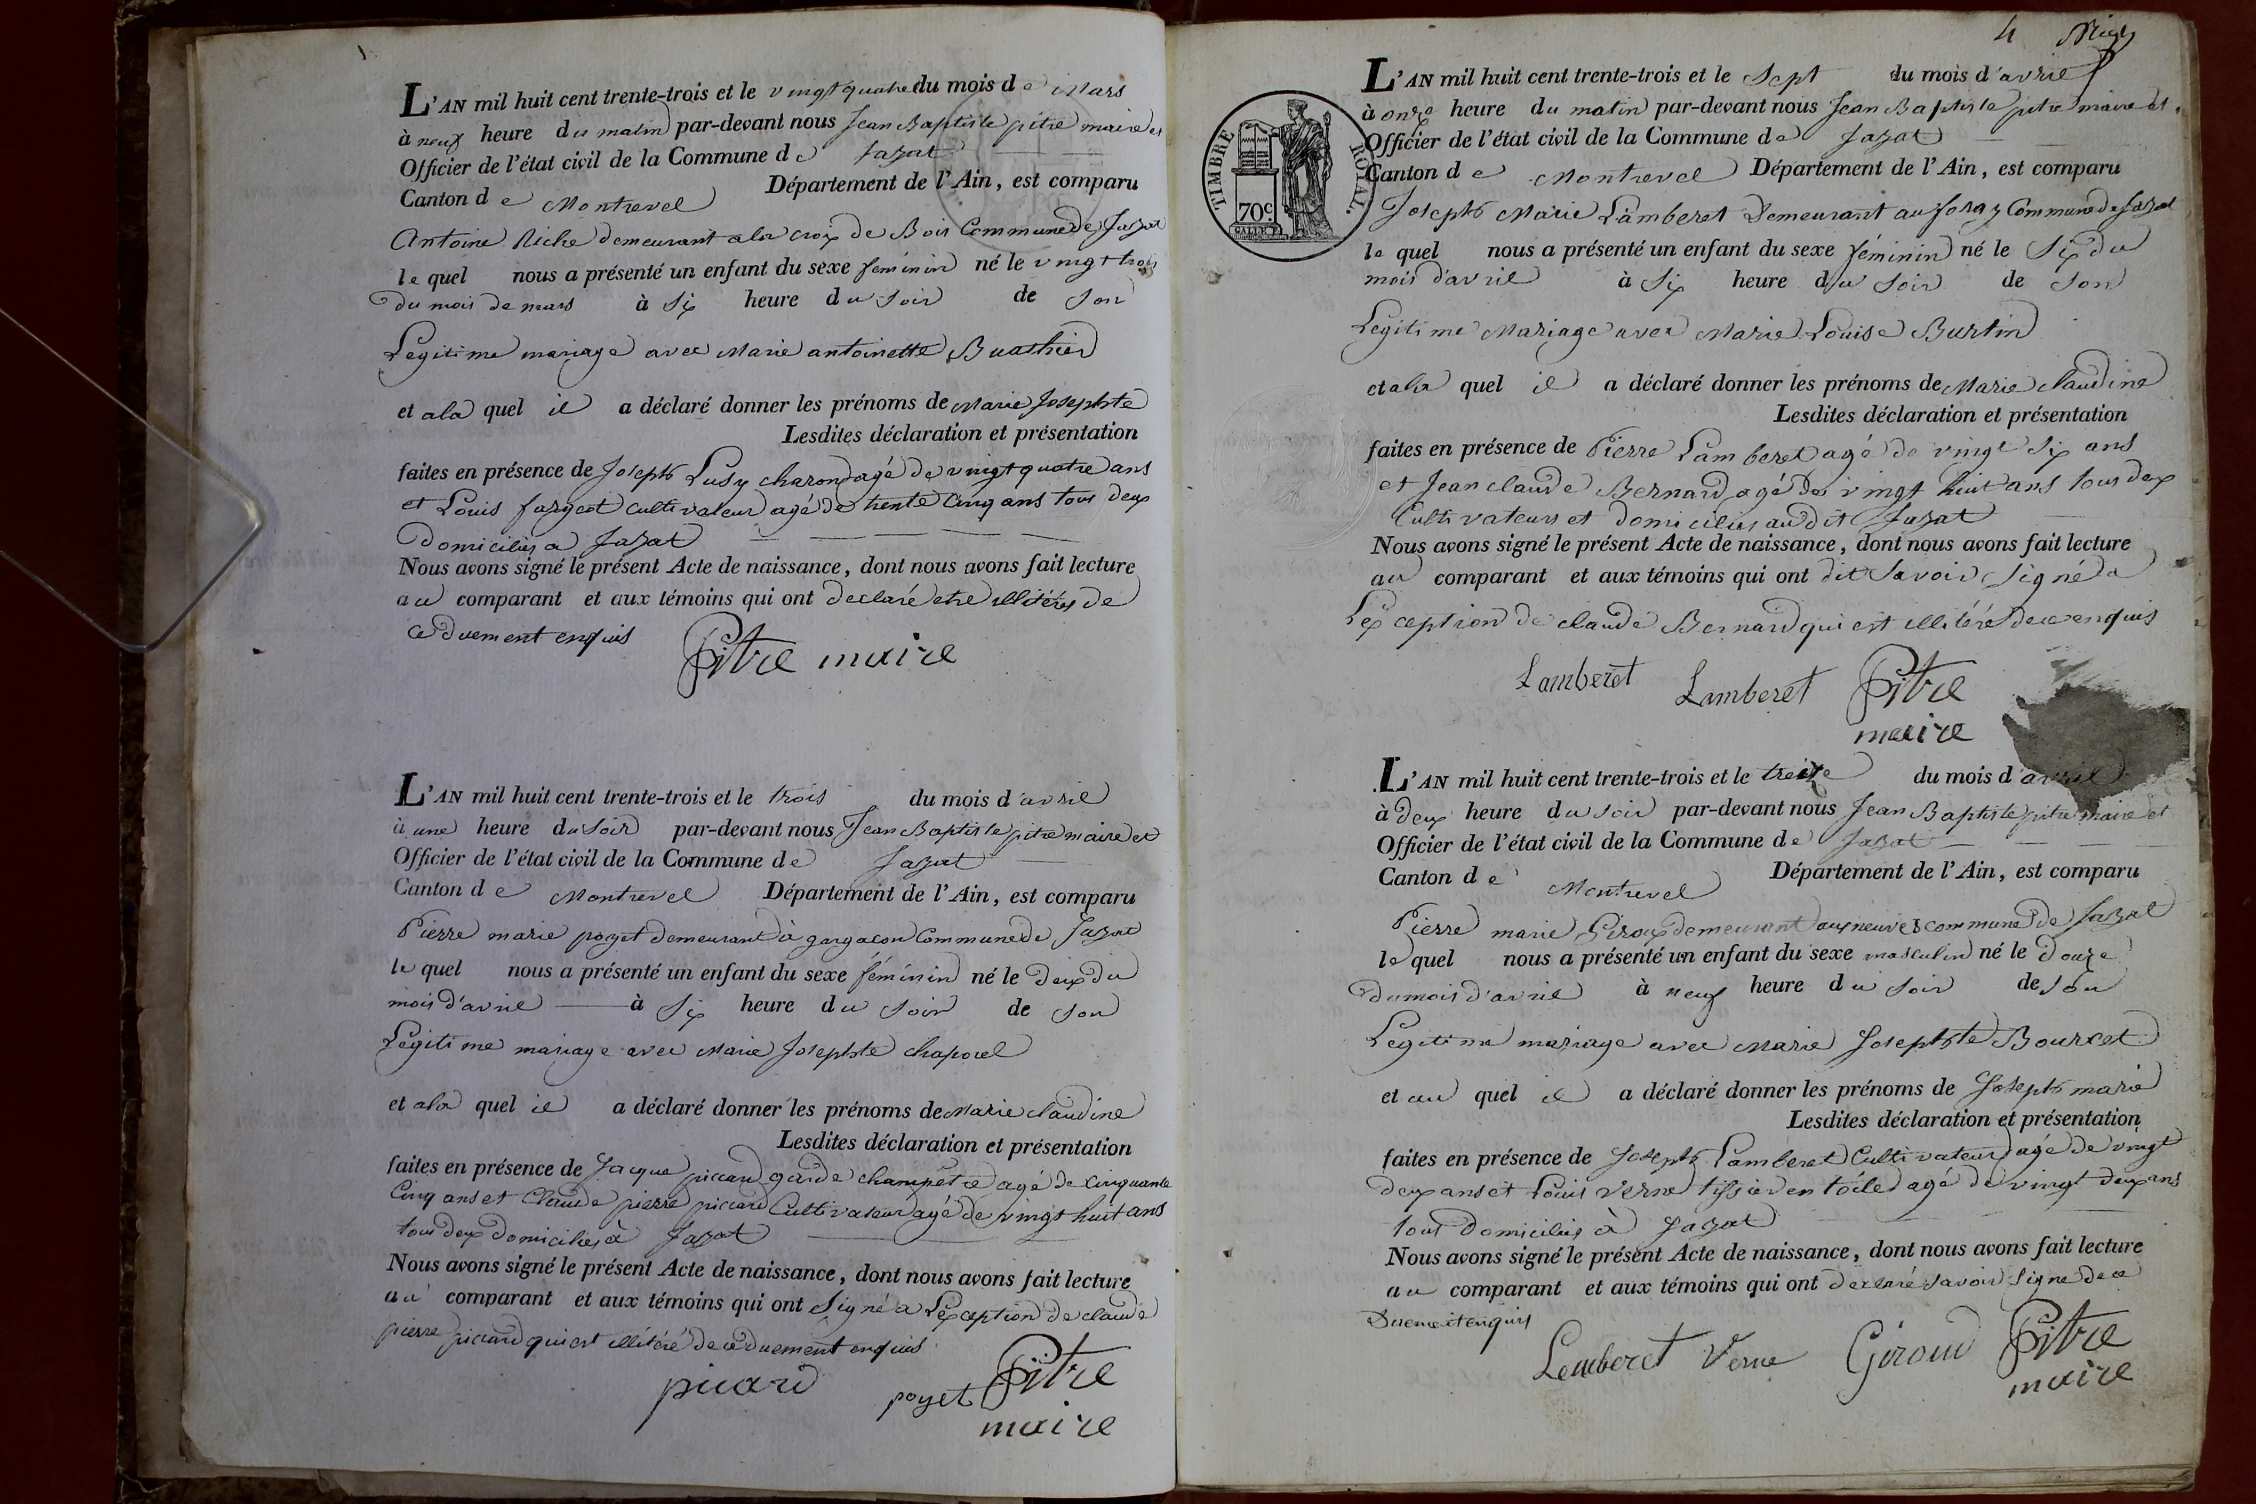 L'AN mil huit cent trente-trois et le vingt quatre du mois de Mars
à neuf heure du matin par-devant nous Jean Baptiste pitre maire et
Officier de l'état civil de la Commune de Jazat
Canton de Montrevel Département de l'Ain, est comparu
Antoine Riche demeurant a la croix de Bois Commune de Jazat
le quel nous a présenté un enfant du sexe féminin né le vingt trois
du mois de mars à six heure du soir de son
Legitime mariage avec Marie antoinette Buathier
et a la quel il a déclaré donner les prénoms de Marie Josephte
Lesdites déclaration et présentation
faites en présence de Joseph Lusy charon agé de vingt quatre ans
et Louis fargeot cultivateur agé de trente cinq ans tous deux
domiciliés a Jazat
Nous avons signé le présent Acte de naissance, dont nous avons fait lecture
au comparant et aux témoins qui ont declaré etre illitérés de
ce duement enquis
Pitre maire
L'AN mil huit cent trente-trois et le trois du mois d'avril
à une heure du soir par-devant nous Jean Baptiste pitre maire et
Officier de l'état civil de la Commune de Jazat
Canton de Montrevel Département de l'Ain, est comparu
Pierre marie poyet demeurant à gargacon Commune de Jazat
le quel nous a présenté un enfant du sexe féminin né le deux du
mois d'avril à six heure du soir de son
Legitime mariage avec Marie Josephte chaporel
et a la quel il a déclaré donner les prénoms de Marie claudine
Lesdites déclaration et présentation
faites en présence de Jacque piccard garde champêtre agé de cinquante
cinq ans et Claude pierre piccard Cultivateur agé de vingt huit ans
tous deux domiciliés à Jazat
Nous avons signé le présent Acte de naissance, dont nous avons fait lecture
au comparant et aux témoins qui ont signé a L'exception de claude
pierre piccard qui est illitéré de ce duement enquis
picard
poyet Pitre
maire
4
TIMBRE ROYAL.
70c
L'AN mil huit cent trente-trois et le sept du mois d'avril
à onze heure du matin par-devant nous Jean Baptiste pitre maire et
Officier de l'état civil de la Commune de Jazat
Canton de Montrevel Département de l'Ain, est comparu
Joseph Marie Lamberet demeurant au Commune de Jazat
le quel nous a présenté un enfant du sexe féminin né le six du
mois d'avril à six heure du soir de son
Legitime Mariage avec Marie Louise Burtin
et a la quel il a déclaré donner les prénoms de Marie claudine
Lesdites déclaration et présentation
faites en présence de Pierre Lamberet agé de vingt six ans
et Jean claude Bernard agé de vingt huit ans tous deux
Cultivateurs et domiciliés audit Jazat
Nous avons signé le présent Acte de naissance, dont nous avons fait lecture
au comparant et aux témoins qui ont dit savoir signé a
L'exception de claude Bernard qui est illitéré de ce enquis
Lamberet Lamberet Pitre
maire
L'AN mil huit cent trente-trois et le treize du mois d'avril
à deux heure du soir par-devant nous Jean Baptiste pitre maire et
Officier de l'état civil de la Commune de Jazat
Canton de Montrevel Département de l'Ain, est comparu
Pierre marie Giroux demeurant aux commune de Jazat
le quel nous a présenté un enfant du sexe masculin né le douze
du mois d'avril à neuf heure du soir de son
Legitime mariage avec Marie Josephte Bourcet
et au quel il a déclaré donner les prénoms de Joseph marie
Lesdites déclaration et présentation
faites en présence de Joseph Lamberet Cultivateur agé de vingt
deux ans et Louis Verne tissier en toile agé de vingt deux ans
tous domiciliés à Jazat
Nous avons signé le présent Acte de naissance, dont nous avons fait lecture
au comparant et aux témoins qui ont declaré savoir signe de ce
Duement enquis
Lamberet Verne Giroud Pitre
maire